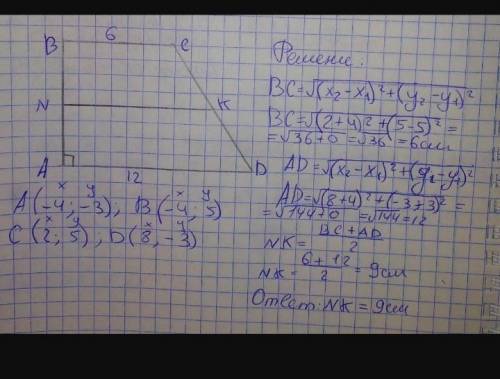 B 6 C
N K
A 12 D
x y x y
A(-4; -3); B(-4; 5)
x y x y
C(2; 5); D(8; -3)
Решение:
BC=√(x₂-x₁)²+(y₂-y₁)²
BC=√(2+4)²+(5-5)²=
=√36+0=√36=6см
AD=√(x₂-x₁)²+(y₂-y₁)²
AD=√(8+4)²+(-3+3)²=
=√144+0=√144=12
NK=BC+AD/2
NK=6+12/2=9см
Ответ: NK=9см